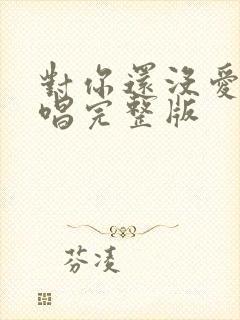 對你還沒愛
唱完整版
芬凌